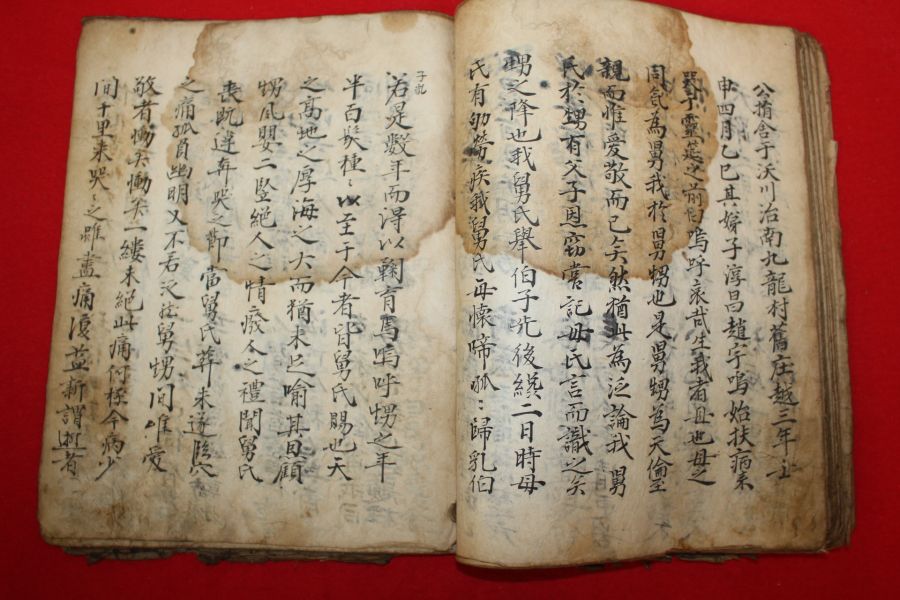 公捐舍于沃川治南九龍村舊庄越三年壬
申四月乙巳其甥子淳昌趙宇鳴始扶病來
哭于靈筵之前曰嗚呼哀哉生我者母也母之
同氣為舅我於舅甥也是舅甥為天倫至
親而惟愛敬而已矣然猶此為泛論我舅
氏於甥有父子恩窃嘗記母氏言而識之矣
甥之降也我舅氏舉伯子先後纔二日時母
氏有劬勞疾我舅氏母懷啼呱ミ歸乳伯
子乳
若是數年而得以鞠育焉嗚呼甥之年
半百髮種ミ以至于今者皆舅氏賜也天
之高地之厚海之大而猶未足喻其恩顧
甥夙嬰二竪絕人之情廢人之禮聞舅氏
喪既違奔哭之節當舅氏葬未遂臨穴
之痛孤負幽明又不若泛於舅甥間唯愛
敬者慟矣慟矣一縷未絕此痛何極今病少
間千里來哭ミ之雖盡痛復益新謂逝者